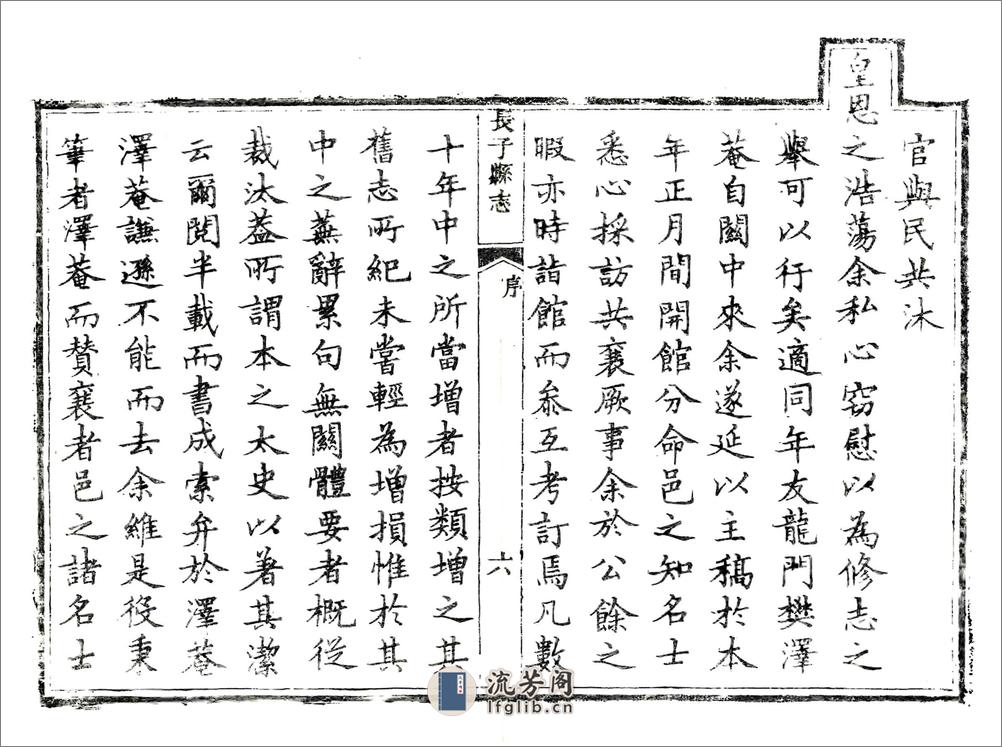 官與民共沐
皇恩之浩蕩余私心窃慰以為修志之
舉可以行矣適同年友龍門樊澤
菴自關中來余遂延以主稿於本
年正月間開館分命邑之知名士
悉心採訪共襄厥事余於公餘之
暇亦時詣館而叅互考訂焉凡數
長子縣志
序
六
十年中之所當增者按類增之其
舊志所紀未嘗輕為增損惟於其
中之蕪辭累句無關體要者概從
裁汰葢所謂本之太史以著其潔
云爾閱半載而書成索弁於澤菴
澤菴謙遜不能而去余維是役秉
筆者澤菴而贊襄者邑之諸名士
流芳阁
lfglib.cn